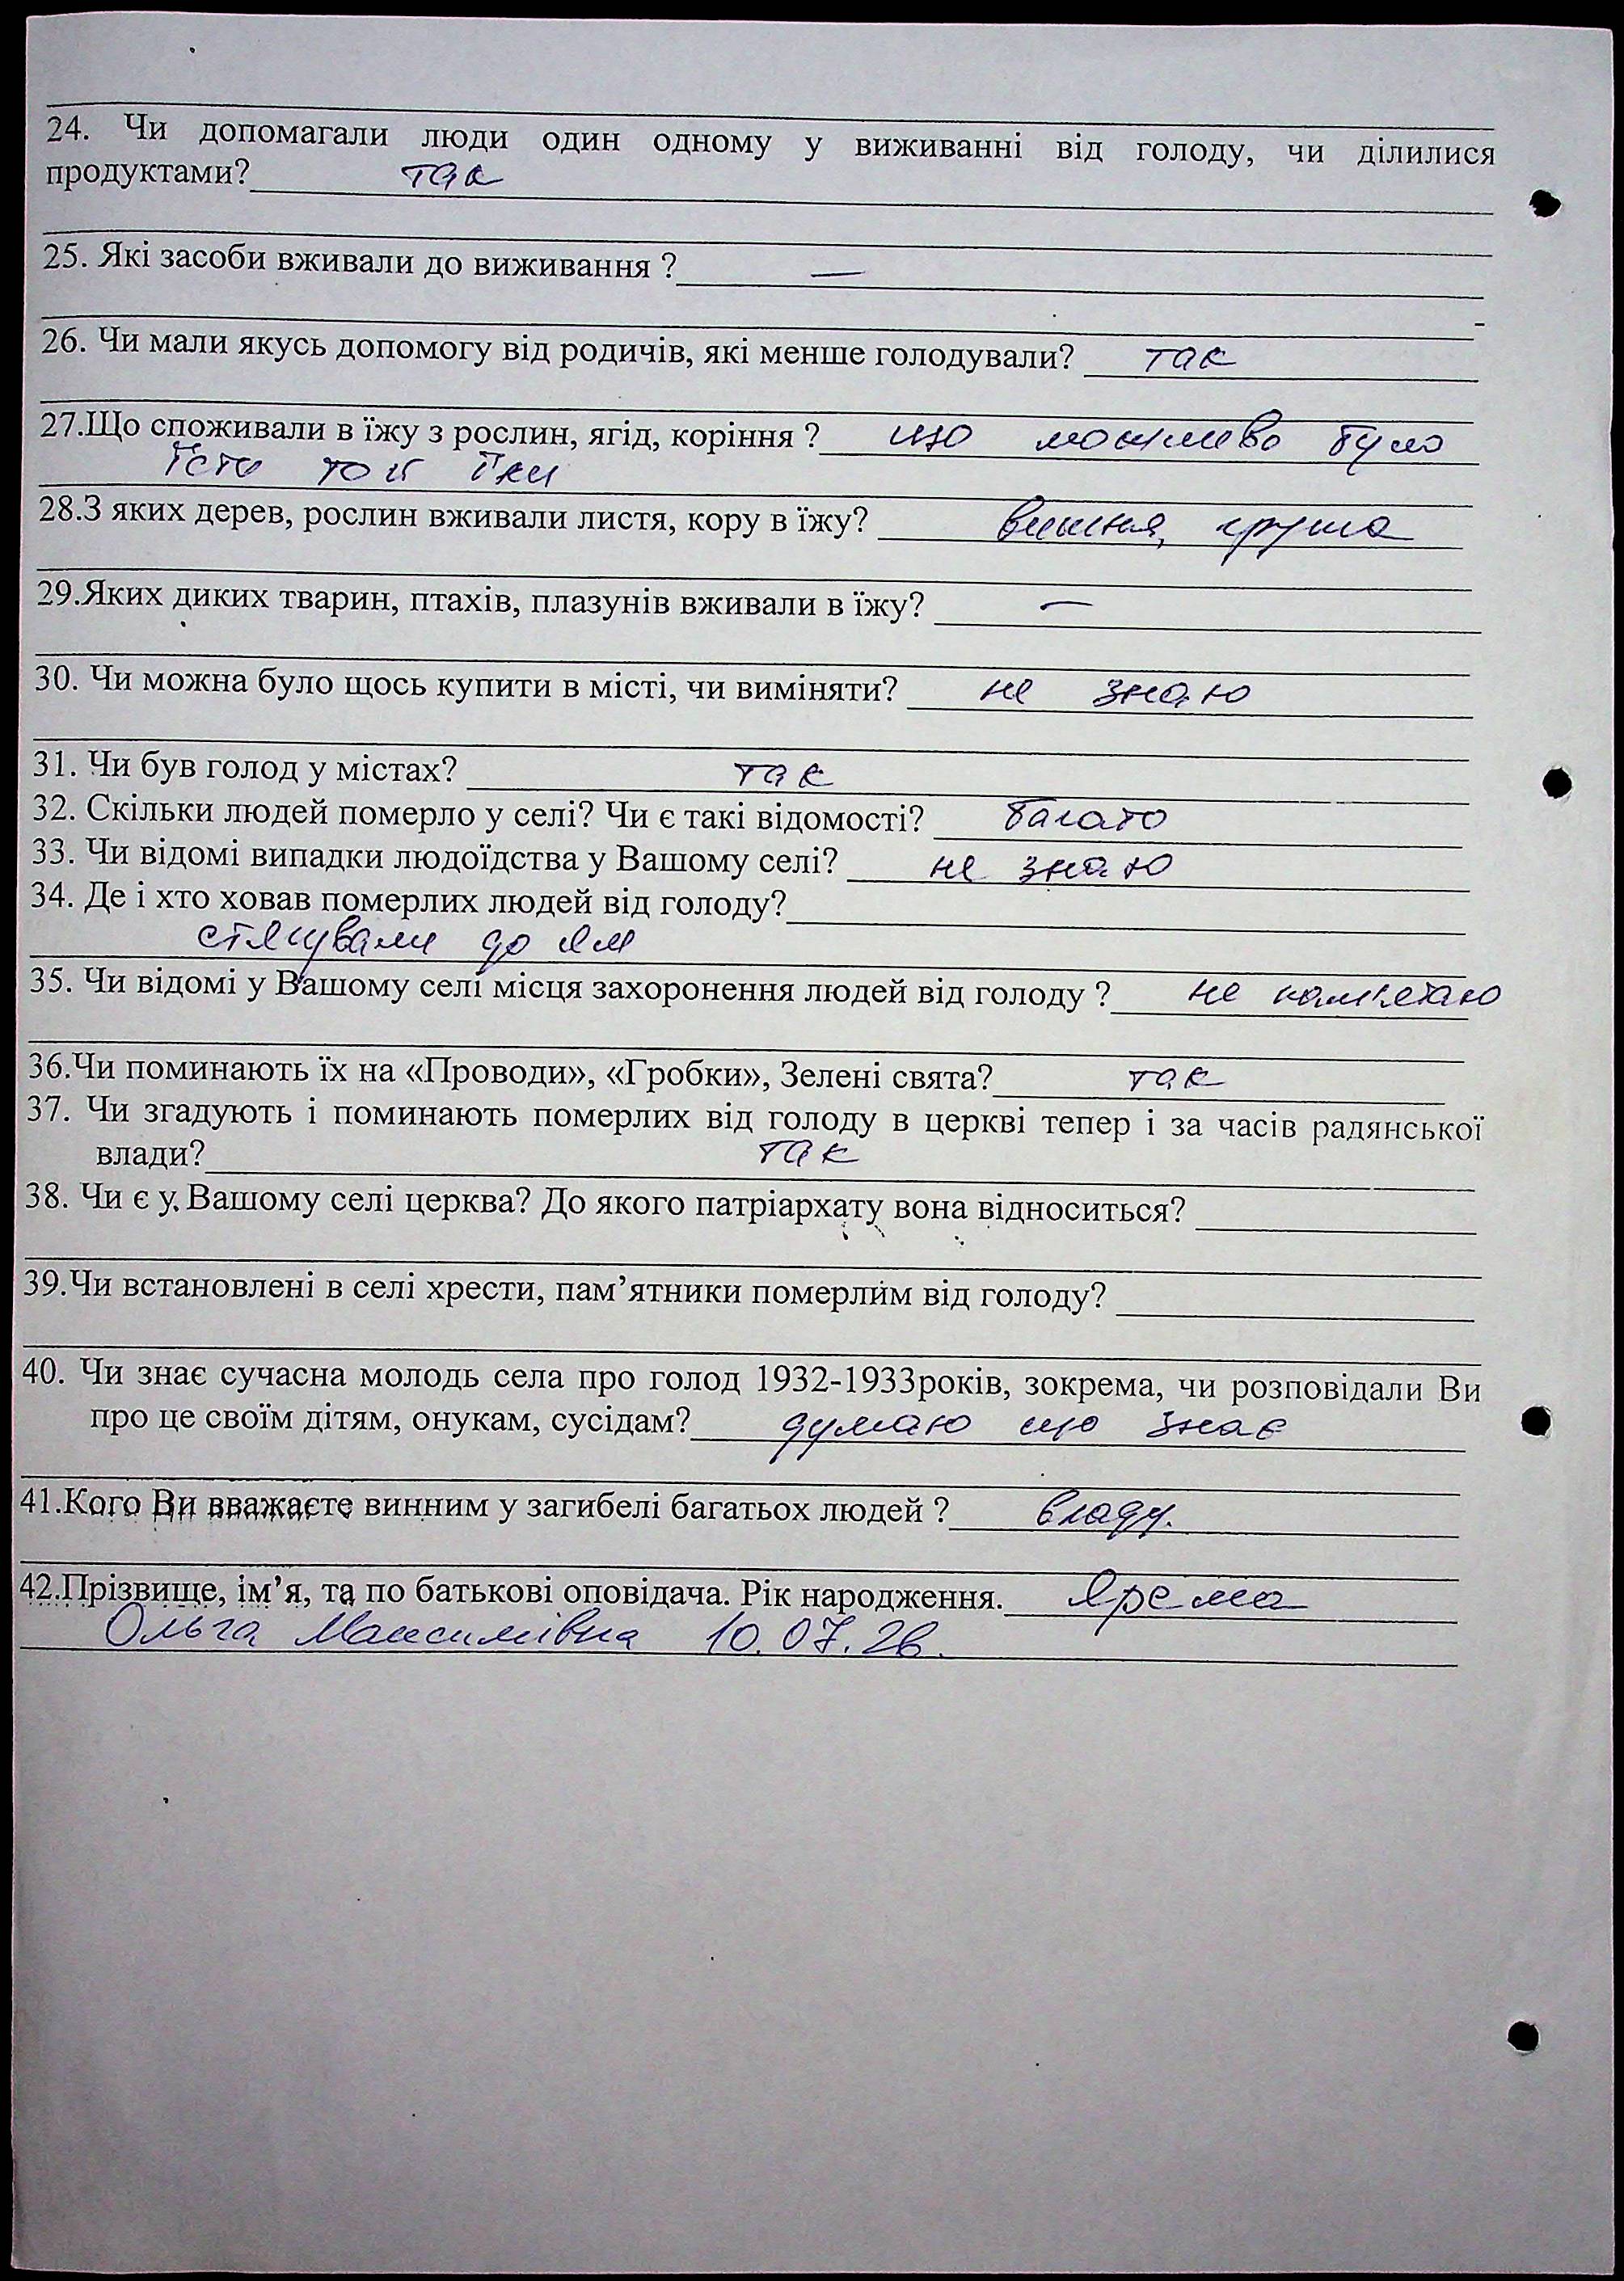 24. Чи допомагали люди один одному у виживанні від голоду, чи ділилися
продуктами? так
25. Які засоби вживали до виживання ? —
26. Чи мали якусь допомогу від родичів, які менше голодували? так
27.Що споживали в їжу з рослин, ягід, коріння ? що можливо було
їсти то й їли
28.З яких дерев, рослин вживали листя, кору в їжу? вишня, груша
29.Яких диких тварин, птахів, плазунів вживали в їжу? —
30. Чи можна було щось купити в місті, чи виміняти? не знаю
31. Чи був голод у містах? так
32. Скільки людей померло у селі? Чи є такі відомості? багато
33. Чи відомі випадки людоїдства у Вашому селі? не знаю
34. Де і хто ховав померлих людей від голоду?
стягували до ям
35. Чи відомі у Вашому селі місця захоронення людей від голоду ? не пам'ятаю
36.Чи поминають їх на «Проводи», «Гробки», Зелені свята? так
37. Чи згадують і поминають померлих від голоду в церкві тепер і за часів радянської
влади? так
38. Чи є у Вашому селі церква? До якого патріархату вона відноситься?
39.Чи встановлені в селі хрести, пам’ятники померлим від голоду?
40. Чи знає сучасна молодь села про голод 1932-1933років, зокрема, чи розповідали Ви
про це своїм дітям, онукам, сусідам? думаю що знає
41.Кого Ви вважаєте винним у загибелі багатьох людей ? владу.
42.Прізвище, ім’я, та по батькові оповідача. Рік народження. Ярема
Ольга Максимівна 10.07.26.